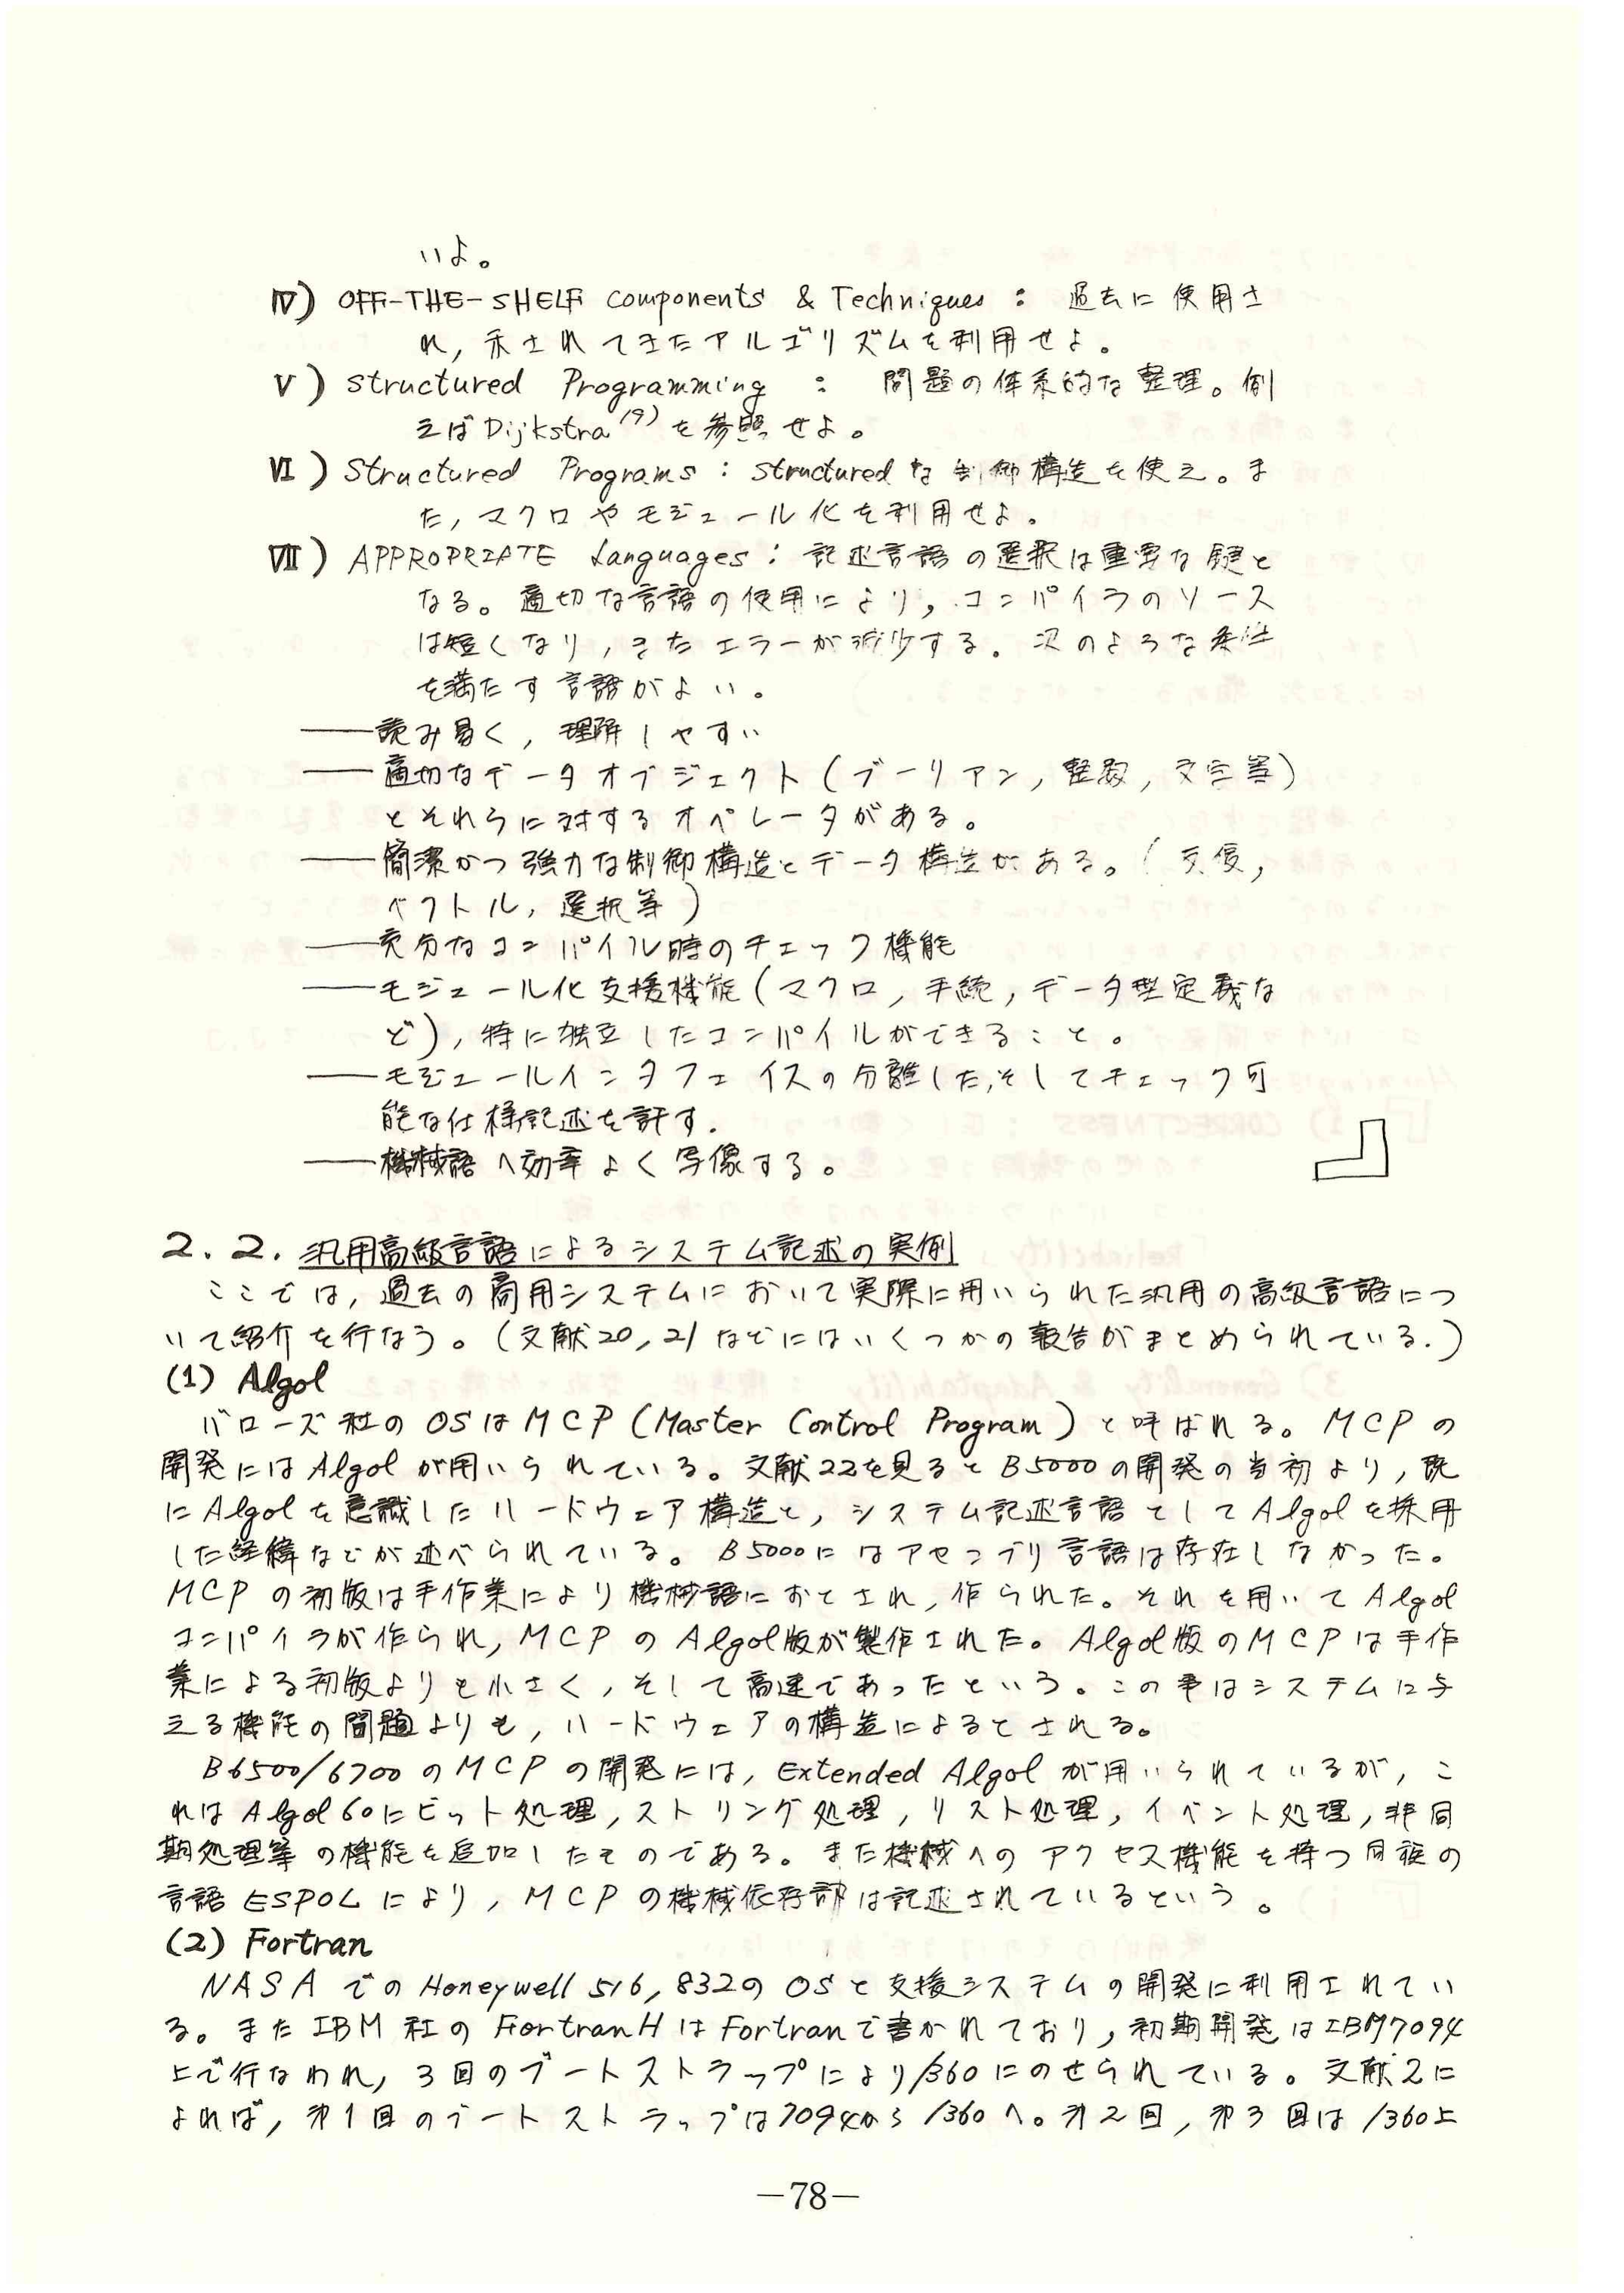 いよ。
Ⅳ) OFF-THE-SHELF Components & Techniques : 過去に使用さ
れ, 示されてきたアルゴリズムを利用せよ。
Ⅴ) Structured Programming : 問題の体系的な整理。例
えばDijkstra¹⁹⁾を参照せよ。
Ⅵ) Structured Programs : Structuredな制御構造を使え。ま
た, マクロやモジュール化を利用せよ。
Ⅶ) APPROPRIATE Languages : 記述言語の選択は重要な鍵と
なる。適切な言語の使用により, コンパイラのソース
は短くなり, またエラーが減少する。次のような条件
を満たす言語がよい。
——読み易く, 理解しやすい
——適切なデータオブジェクト(ブーリアン, 整数, 文字等)
とそれらに対するオペレータがある。
——簡潔かつ強力な制御構造とデータ構造がある。(
ベクトル, 選択等)
——充分なコンパイル時のチェック機能
——モジュール化支援機能(マクロ, 手続, データ型定義な
ど), 特に独立したコンパイルができること。
——モジュールインタフェイスの分離した, そしてチェック可
能な仕様記述を許す.
——機械語へ効率よく写像する。
2.2. 汎用高級言語によるシステム記述の実例
ここでは, 過去の商用システムにおいて実際に用いられた汎用の高級言語につ
いて紹介を行なう。(文献20, 21などにはいくつかの報告がまとめられている.)
(1) Algol
バローズ社のOSはMCP(Master Control Program)と呼ばれる。MCPの
開発にはAlgolが用いられている。文献22を見るとB5000の開発の当初より, 既
にAlgolを意識したハードウェア構造と, システム記述言語としてAlgolを採用
した経緯などが述べられている。B5000にはアセンブリ言語は存在しなかった。
MCPの初版は手作業により機械語におとされ, 作られた。それを用いてAlgol
コンパイラが作られ, MCPのAlgol版が製作された。Algol版のMCPは手作
業による初版よりも小さく, そして高速であったという。この事はシステムに与
える機能の問題よりも, ハードウェアの構造によるとされる。
B6500/6700のMCPの開発には, Extended Algolが用いられているが, こ
れはAlgol60にビット処理, ストリング処理, リスト処理, イベント処理, 非同
期処理等の機能を追加したものである。また機械へのアクセス機能を持つ同族の
言語ESPOLにより, MCPの機械依存部は記述されているという。
(2) Fortran
NASAでのHoneywell 516, 832のOSと支援システムの開発に利用されてい
る。またIBM社のFortranHはFortranで書かれており, 初期開発はIBM7094
上で行なわれ, 3回のブートストラップにより/360にのせられている。文献2に
よれば, 第1回のブートストラップは7094から/360へ。第2回, 第3回は/360上
—78—